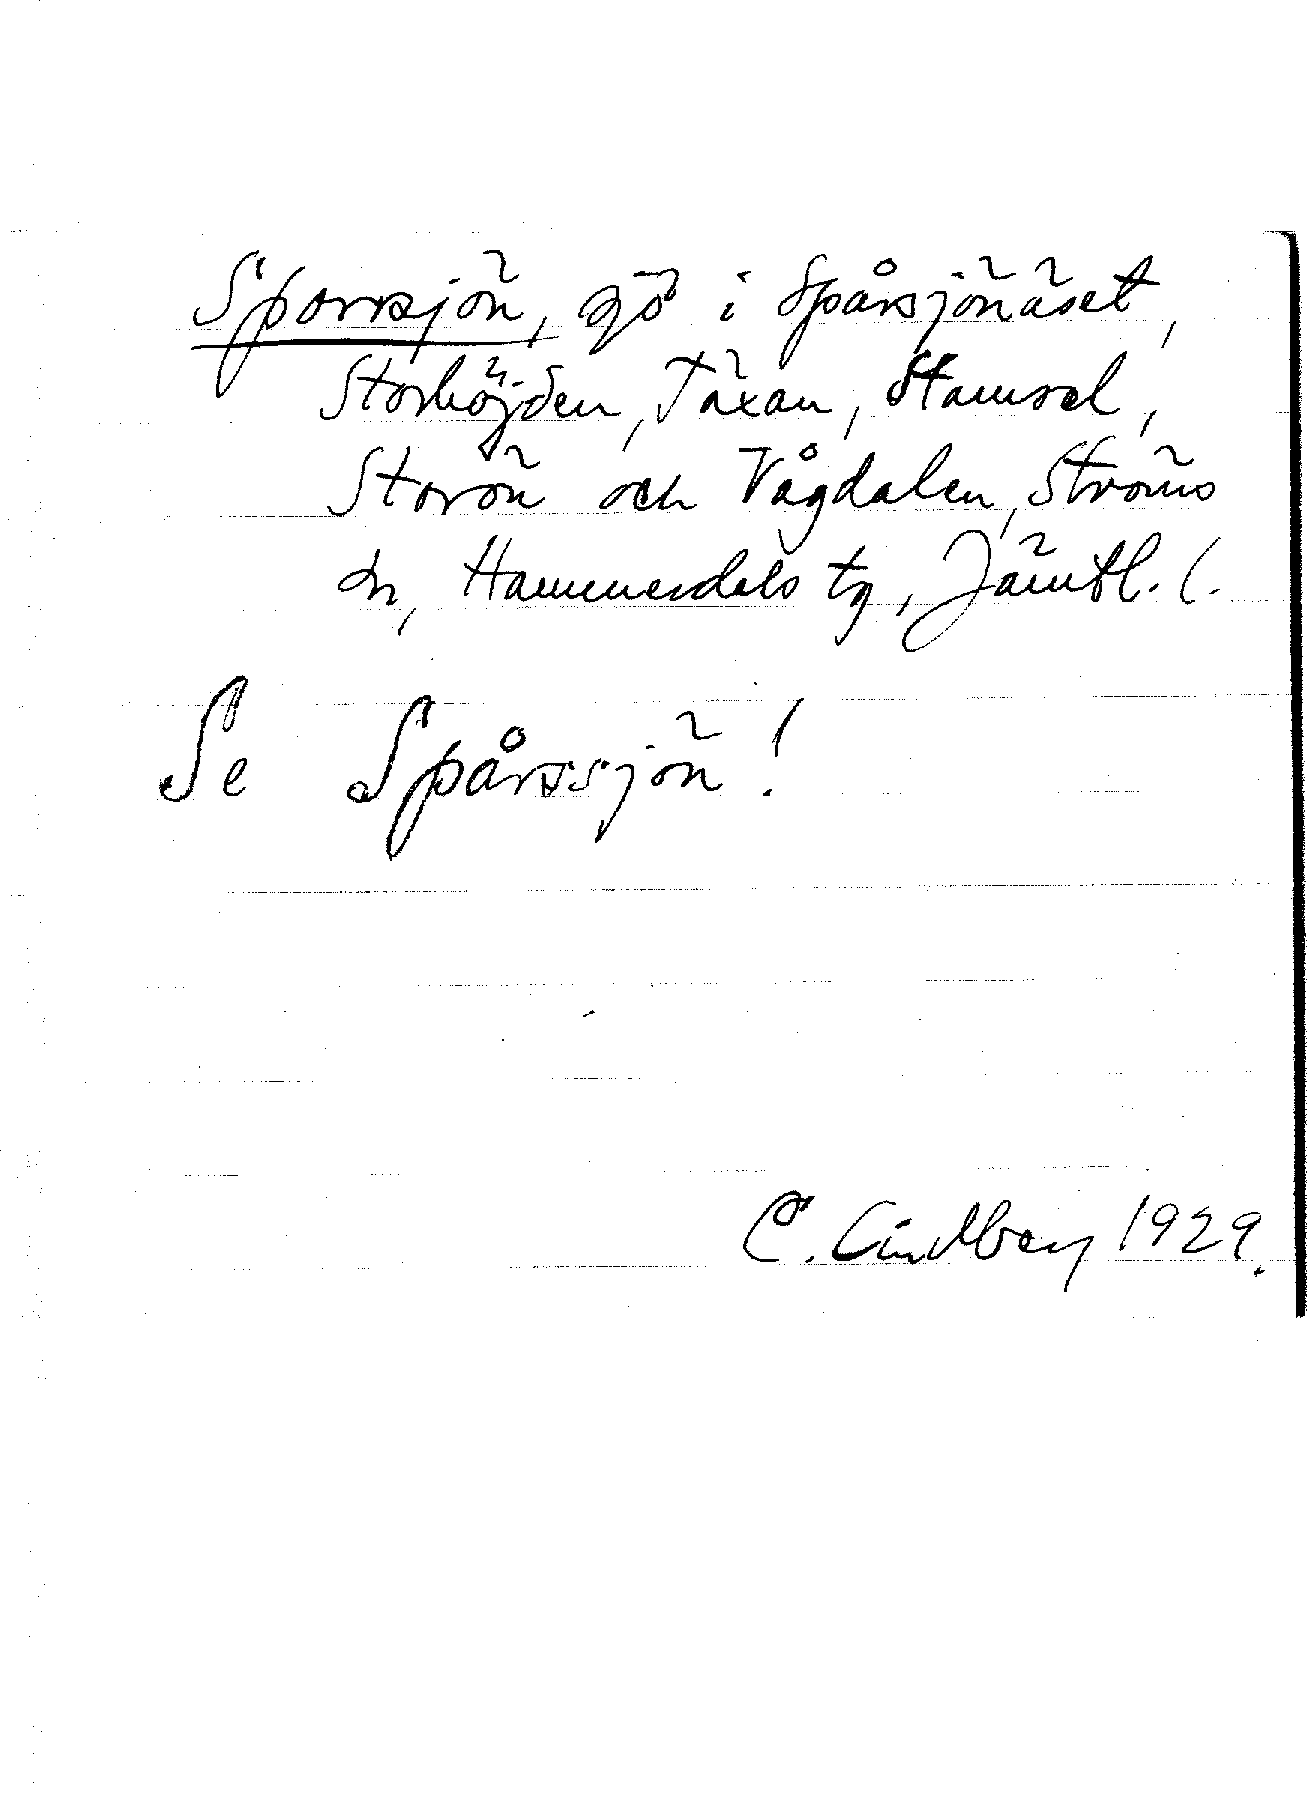 Sporrsjön, sjö i Spårsjönäset,
Storhöjden, Täxan, Stamsel,
Storön och Vågdalen, Ströms
sn, Hammerdals tg, Jämtl. l.
Se Spårssjön!
C. Lindberg 1929.